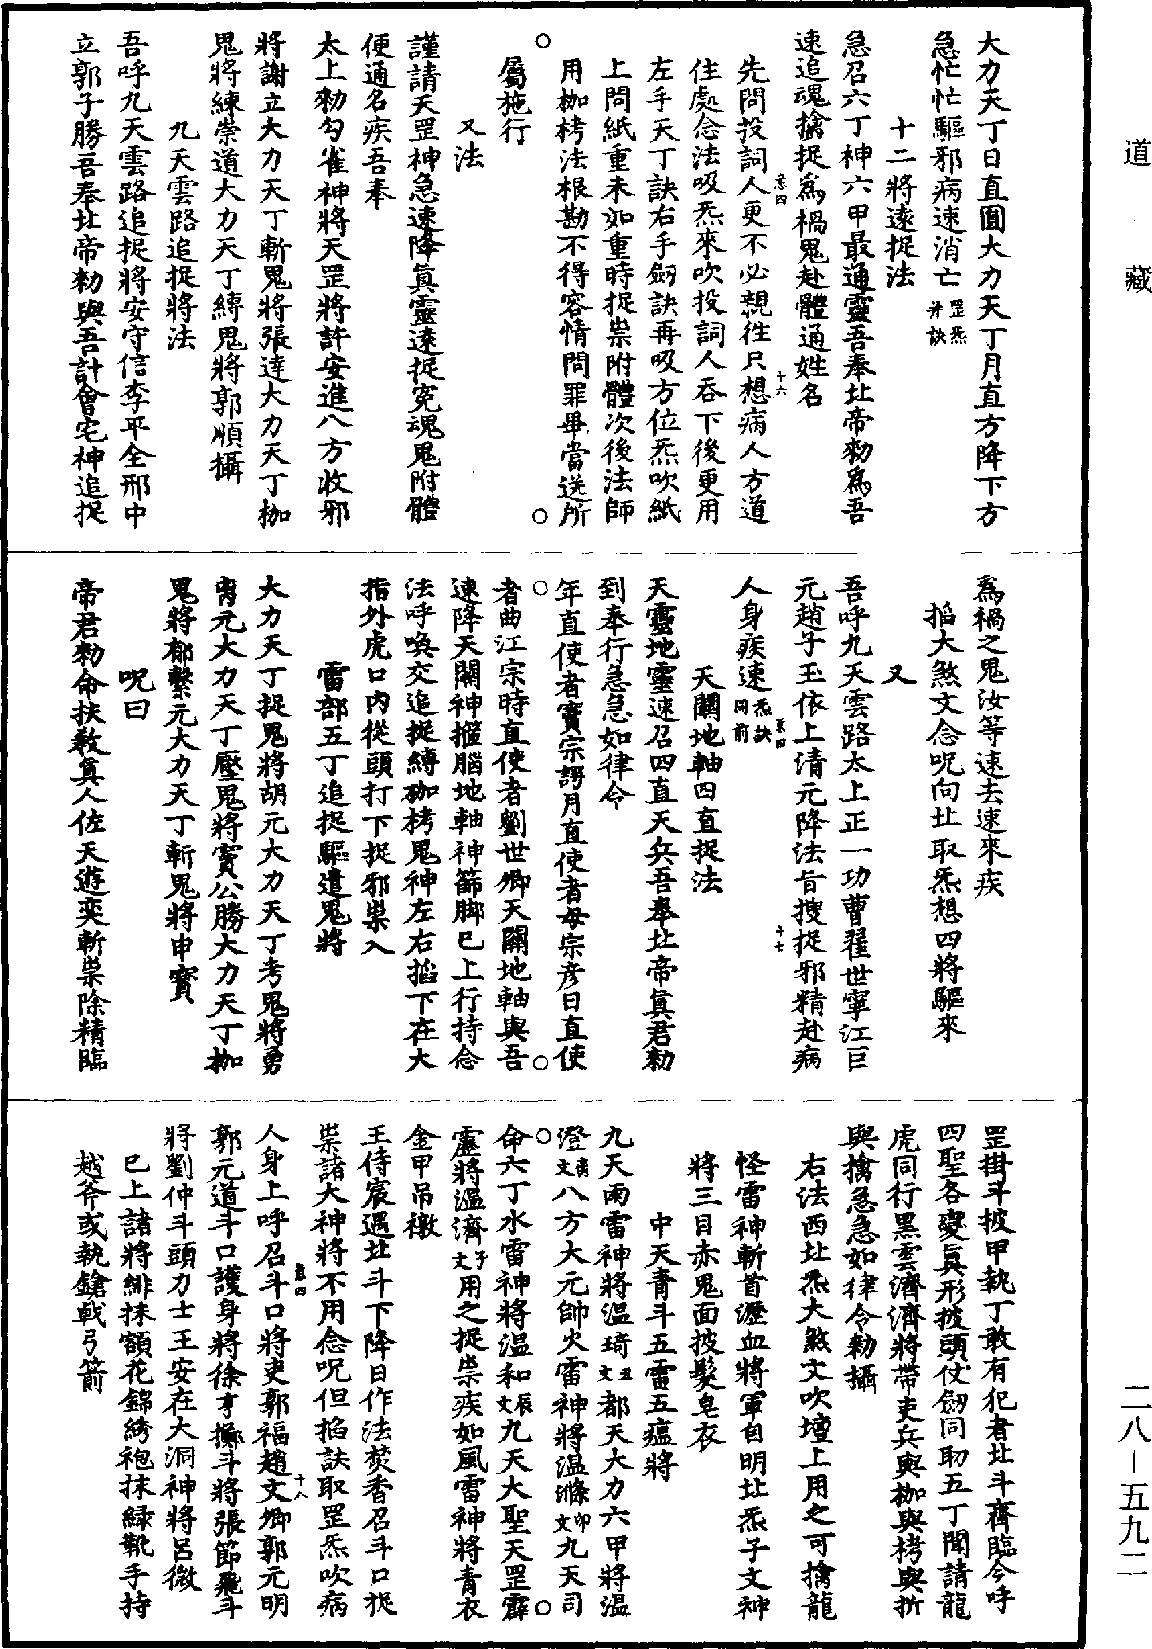 道藏
大力天丁日直圓大力天丁月直方降下方
急忙忙驅邪病速消亡罡炁斗訣
十二將速捉法
急召六丁神六甲最通靈吾奉北帝勑為吾
速追魂擒捉為禍鬼赴體通姓名
先問投詞人更不必親往只想病人方道
住處念法吸炁來吹投詞人吞下後更用
左手天丁訣右手劒訣再吸方位炁吹紙
上問紙重未如重時捉祟附體次後法師
用枷栲法根勘不得容情問罪畢當送所
屬施行
又法
謹請天罡神急速降真靈速捉冤魂鬼附體
便通名疾吾奉
太上勑勾雀神將天罡將許安進八方收邪
將謝立大力天丁斬鬼將張達大力天丁枷
鬼將練崇道大力天丁縛鬼將郭順攝
九天雲路追捉將法
吾呼九天雲路追捉將安守信李平全邢中
立郭子勝吾奉北帝勑與吾計會宅神追捉
為禍之鬼汝等速去速來疾
掐大煞文念呪向北取炁想四將驅來
又
吾呼九天雲路太上正一功曹翟世寧江巨
元趙子玉依上清元降法旨搜捉邪精赴病
人身疾速炁訣同前
天關地軸四直捉法
天靈地靈速召四直天兵吾奉北帝真君勑
到奉行急急如律令
年直使者竇宗諤月直使者毋宗彦日直使
者曲江宗時直使者劉世卿天關地軸與吾
速降天關神箍腦地軸神篩脚已上行持念
法呼喚交追捉縛枷栲鬼神左右掐下在大
指外虎口內從頭打下捉邪祟入
雷部五丁追捉驅遣鬼將
大力天丁捉鬼將胡元大力天丁考鬼將勇
胄元大力天丁壓鬼將竇公勝大力天丁枷
鬼將郁繫元大力天丁斬鬼將申寶
呪曰
帝君勑命扶教真人佐天遊奕斬祟除精臨
罡掛斗披甲執丁敢有犯者北斗齊臨今呼
四聖各變真形披頭仗劒同助五丁聞請龍
虎同行黑雲濟濟將帶吏兵與枷與栲與折
與擒急急如律令勑攝
右法西北炁大煞文吹壇上用之可擒龍
怪雷神斬首瀝血將軍自明北炁子文神
將三目赤鬼面披髮皂衣
中天青斗五雷五瘟將
九天雨雷神將溫琦丑文都天大力六甲將溫
澄寅文八方大元帥火雷神將溫滌卯文九天司
命六丁水雷神將溫和辰文九天大聖天罡霹
靂將溫濟子文用之捉祟疾如風雷神將青衣
金甲吊㡓
王侍宸遇北斗下降日作法焚香召斗口捉
祟諸大神將不用念呪但掐訣取罡炁吹病
人身上呼召斗口將吏郭福趙文卿郭元明
郭元道斗口護身將徐亨擲斗將張節飛斗
將劉仲斗頭力士王安在大洞神將呂微
已上諸將緋抹額花錦綉袍抹綠靴手持
越斧或執鎗戟弓箭
二八—五九二